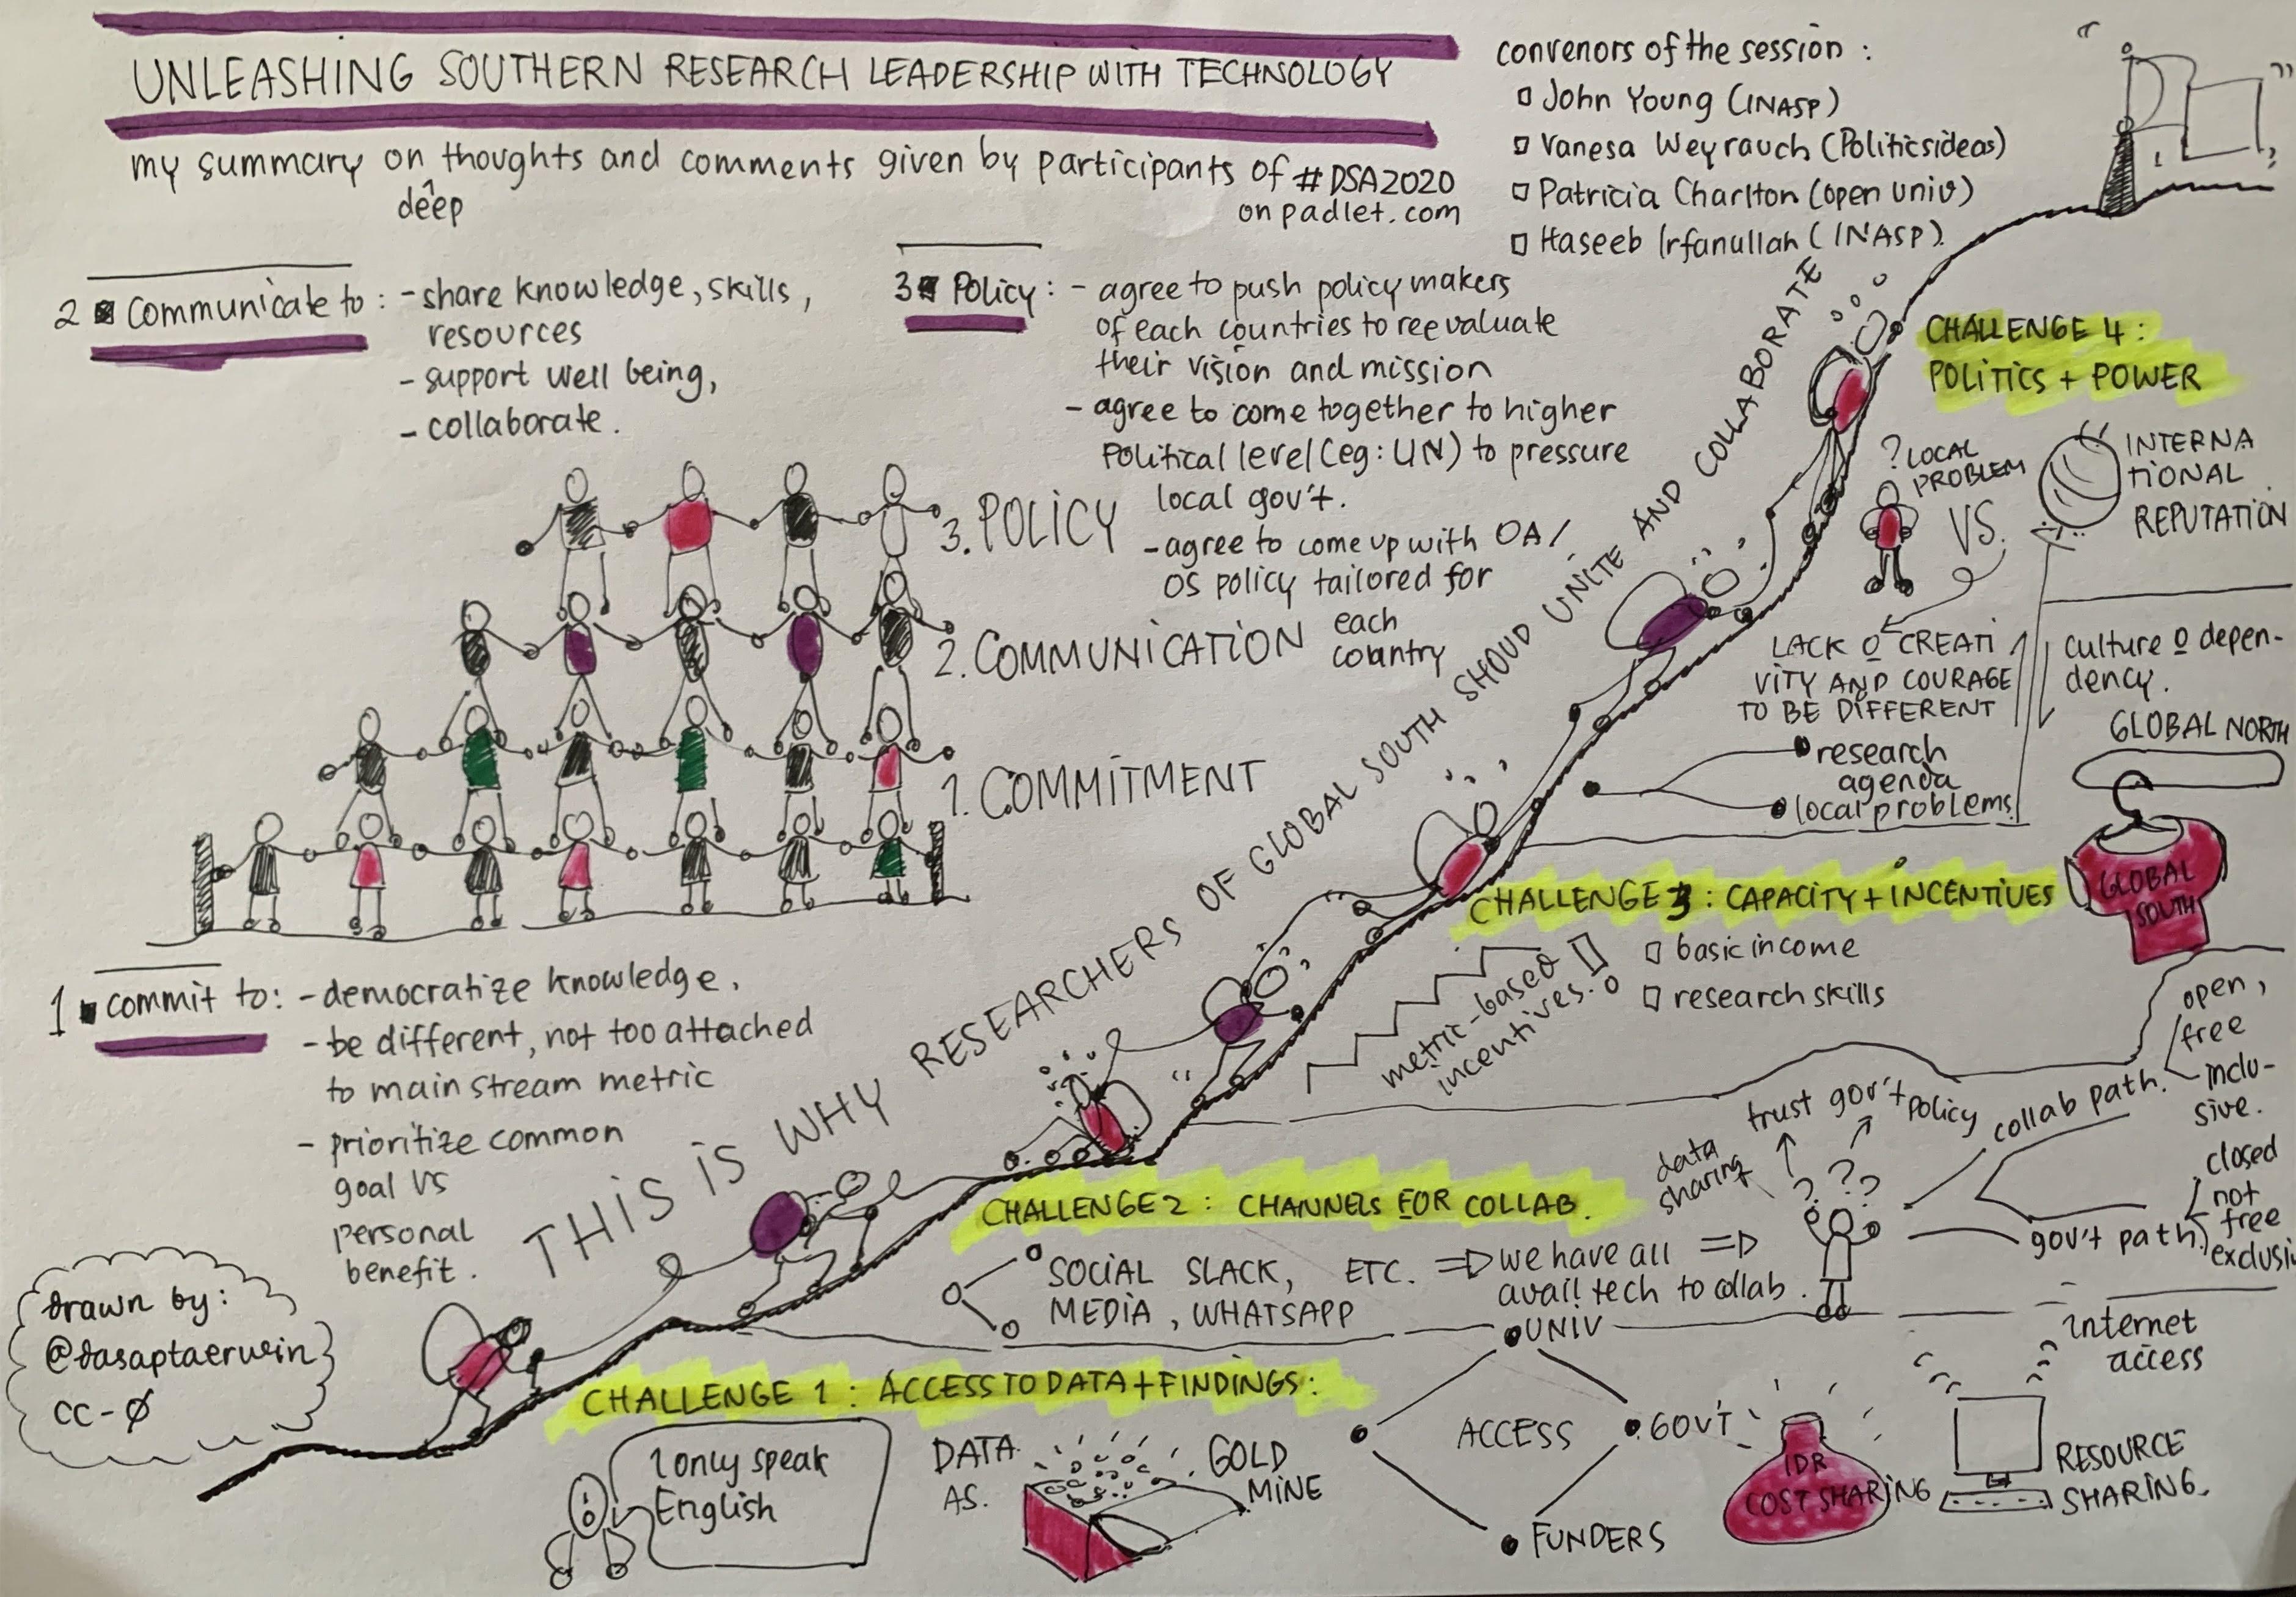 UNLEASHING SOUTHERN RESEARCH LEADERSHIP WITH TECHNOLOGY
my summary on thoughts and comments given by participants of #DSA2020
deep
on padlet.com
convenors of the session :
John Young (INASP)
Vanesa Weyrauch (Politicsideas)
Patricia Charlton (open univ)
Haseeb Irfanullah (INASP)
2 communicate to : - share knowledge, skills,
resources
- support well being,
- collaborate.
3 Policy : - agree to push policy makers
of each countries to reevaluate
their vision and mission
- agree to come together to higher
Political level (eg: UN) to pressure
local gov't.
- agree to come up with OA/
OS policy tailored for
each
country
3. POLICY
2. COMMUNICATION
1. COMMITMENT
1 commit to: - democratize knowledge.
- be different, not too attached
to main stream metric
- prioritize common
goal vs
personal
benefit.
THIS IS WHY RESEARCHERS OF GLOBAL SOUTH SHOUD UNITE AND COLLABORATE
CHALLENGE 4 :
POLITICS + POWER
? LOCAL
PROBLEM
VS.
INTERNA
TIONAL
REPUTATION
LACK O CREATI
VITY AND COURAGE
TO BE DIFFERENT
culture o depen-
dency.
research
agenda
local problems
GLOBAL NORTH
GLOBAL
SOUTH
CHALLENGE 3 : CAPACITY + INCENTIVES
metric-based
incentives.
basic income
research skills
CHALLENGE 2 : CHANNELS FOR COLLAB.
SOCIAL SLACK, ETC.
MEDIA, WHATSAPP
we have all
avail tech to collab.
data
sharing
trust gov't policy
? ? ? ?
collab path.
open,
free
inclu-
sive.
gov't path.
closed
not
free
exclusi
CHALLENGE 1 : ACCESS TO DATA + FINDINGS :
I only speak
English
DATA
AS.
GOLD
MINE
UNIV
ACCESS
GOV'T
FUNDERS
IDR
COST SHARING
internet
access
RESOURCE
SHARING.
drawn by:
@dasaptaerwin
cc-Ø